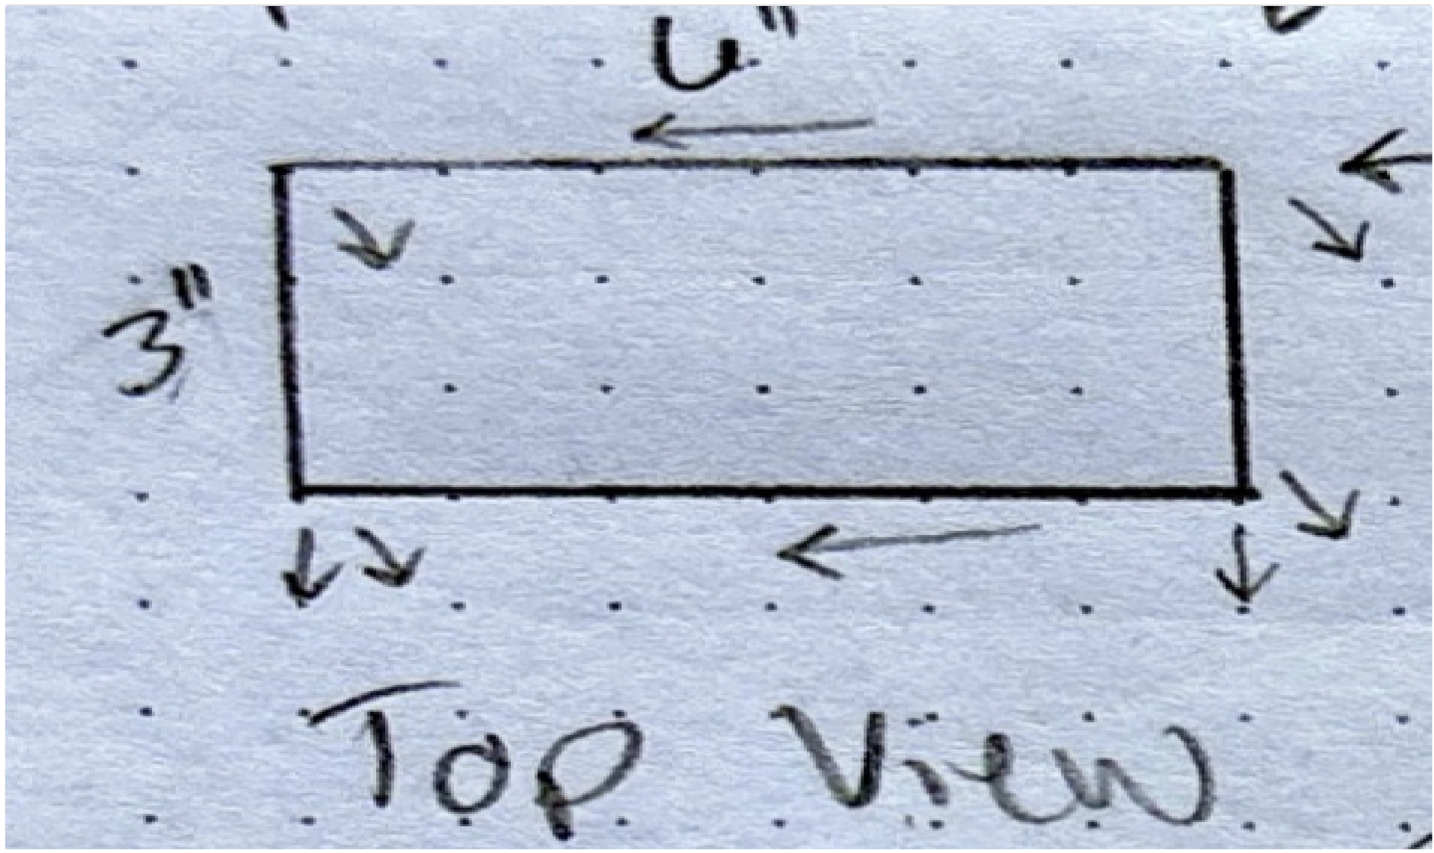 6"
3"
Top View